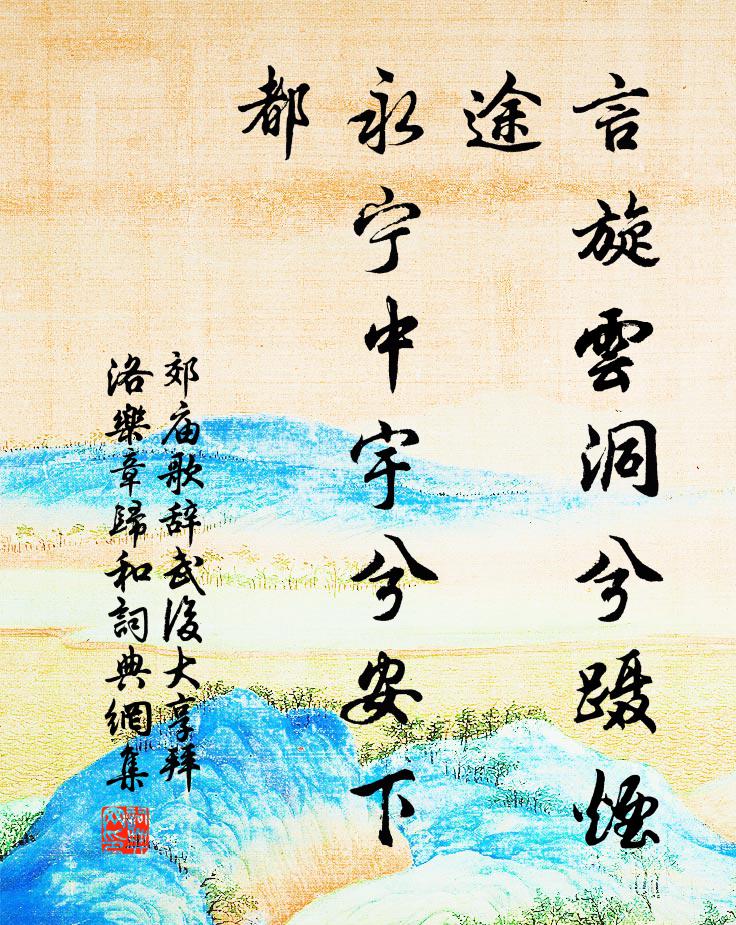 言旋雲洞兮蹑煙
途
永宁中宇兮安下
都
郊庙歌辞武後大享拜
洛樂章歸和詞典網集